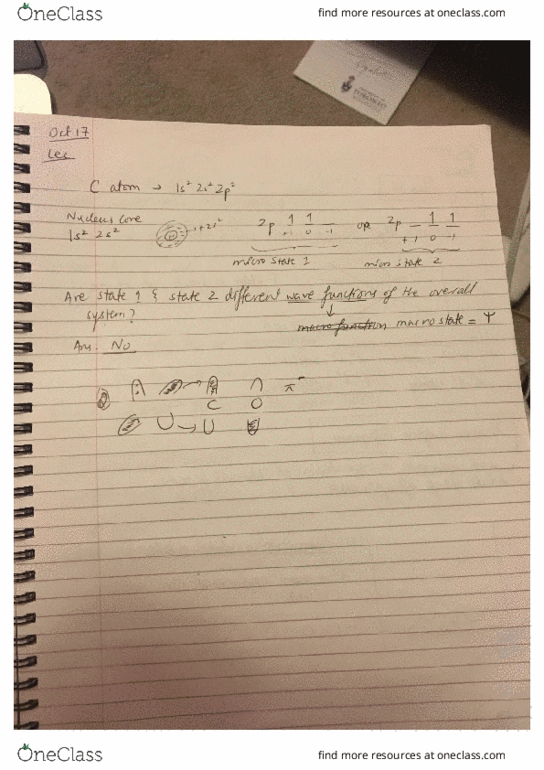 OneClass
find more resources at oneclass.com
Oct 17
Lec
C atom → 1s² 2s² 2p²
Nucleus core
1s² 2s²
2p 1 1 _ or 2p _ 1 1
+1 0 -1 +1 0 -1
micro state 1 micro state 2
Are state 1 & state 2 different wave functions of the overall
system?
macro function macro state = Ψ
Ans: No
π
C O
OneClass
find more resources at oneclass.com